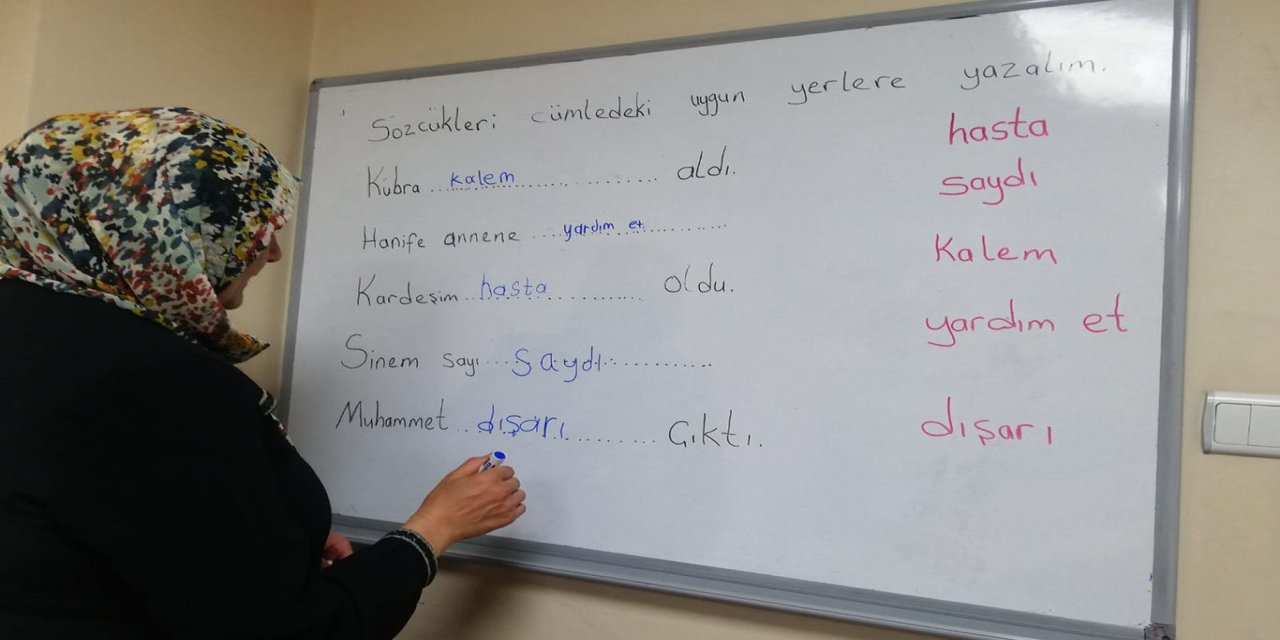 Sözcükleri cümledeki uygun yerlere yazalım.
Kübra ... kalem ............... aldı.
Hanife annene .... yardım et ..........
Kardeşim .. hasta ............ oldu.
Sinem sayı ... saydı ............
Muhammet .. dışarı ............ Çıktı.
hasta
saydı
Kalem
yardım et
dışarı